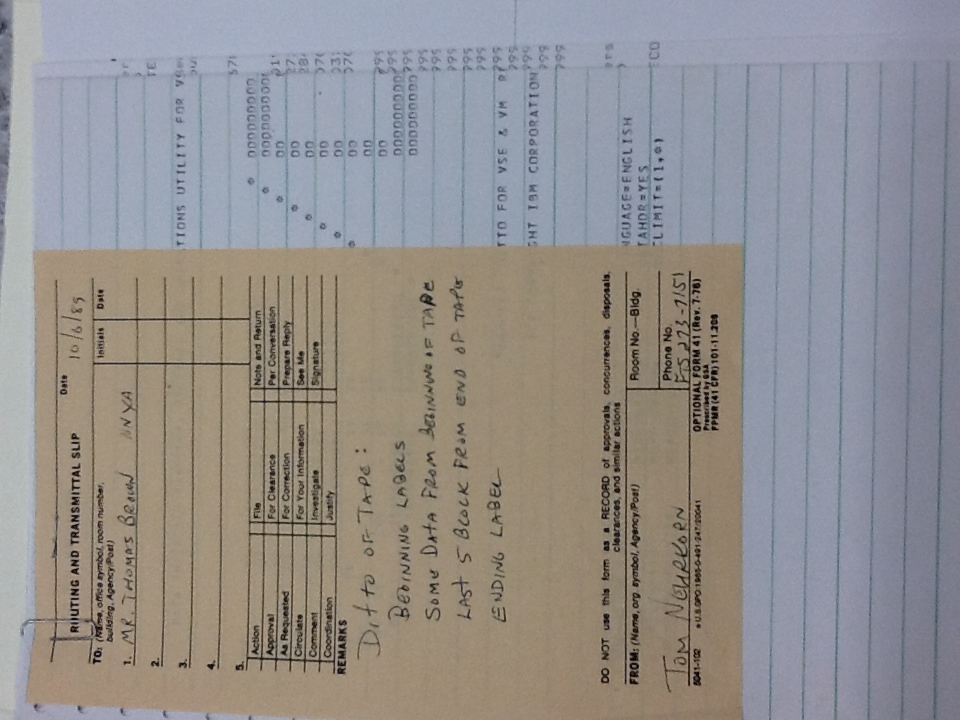 ROUTING AND TRANSMITTAL SLIP
Date
10/6/89
TO: (Name, office symbol, room number,
building, Agency/Post)
Initials Date
1. MR. THOMAS BROWN NNXA
2.
3.
4.
5.
Action File Note and Return
Approval For Clearance Per Conversation
As Requested For Correction Prepare Reply
Circulate For Your Information See Me
Comment Investigate Signature
Coordination Justify
REMARKS
Ditto of TAPE:
BEGINNING LABELS
SOME DATA FROM BEGINNING OF TAPE
LAST 5 BLOCK FROM END OF TAPE
ENDING LABEL
DO NOT use this form as a RECORD of approvals, concurrences, disposals,
clearances, and similar actions
FROM: (Name, org. symbol, Agency/Post)
Room No.—Bldg.
Phone No.
TOM NEHRKORN
FTS 273-7151
5041-102
U.S.GPO:1985-0-491-247/20041
OPTIONAL FORM 41 (Rev. 7-76)
Prescribed by GSA
FPMR (41 CFR) 101-11.206
TIONS UTILITY FOR
DDDDDDDDD
DDDDDDDDD
DD
DD
DD
DD
DD
DD
DD
DD
DDDDDDDDDD
DDDDDDDDD
TTO FOR VSE & VM
GHT IBM CORPORATION
NGUAGE=ENGLISH
TAHDR=YES
CLIMIT=(1,*)